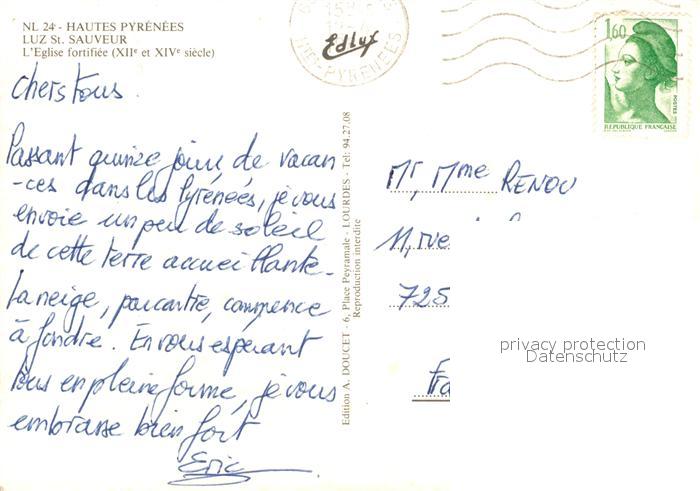 NL 24 - HAUTES PYRÉNÉES
LUZ St. SAUVEUR
L'Eglise fortifiée (XIIe et XIVe siècle)
Chers tous.
Passant quinze jours de vacan
-ces dans les Pyrénées, je vous
envoie un peu de soleil
de cette terre accueillante.
La neige, par contre, commence
à fondre. En vous espérant
tous en pleine forme, je vous
embrasse bien fort
Eric
Edition A. DOUCET - 6, Place Peyramale - LOURDES - Tel: 94.27.08
Reproduction interdite
Edlux
MIDI-PYRENEES
1,60
POSTES
REPUBLIQUE FRANÇAISE
Mr, Mme RENOU
11, rue
725
Fra
privacy protection
Datenschutz